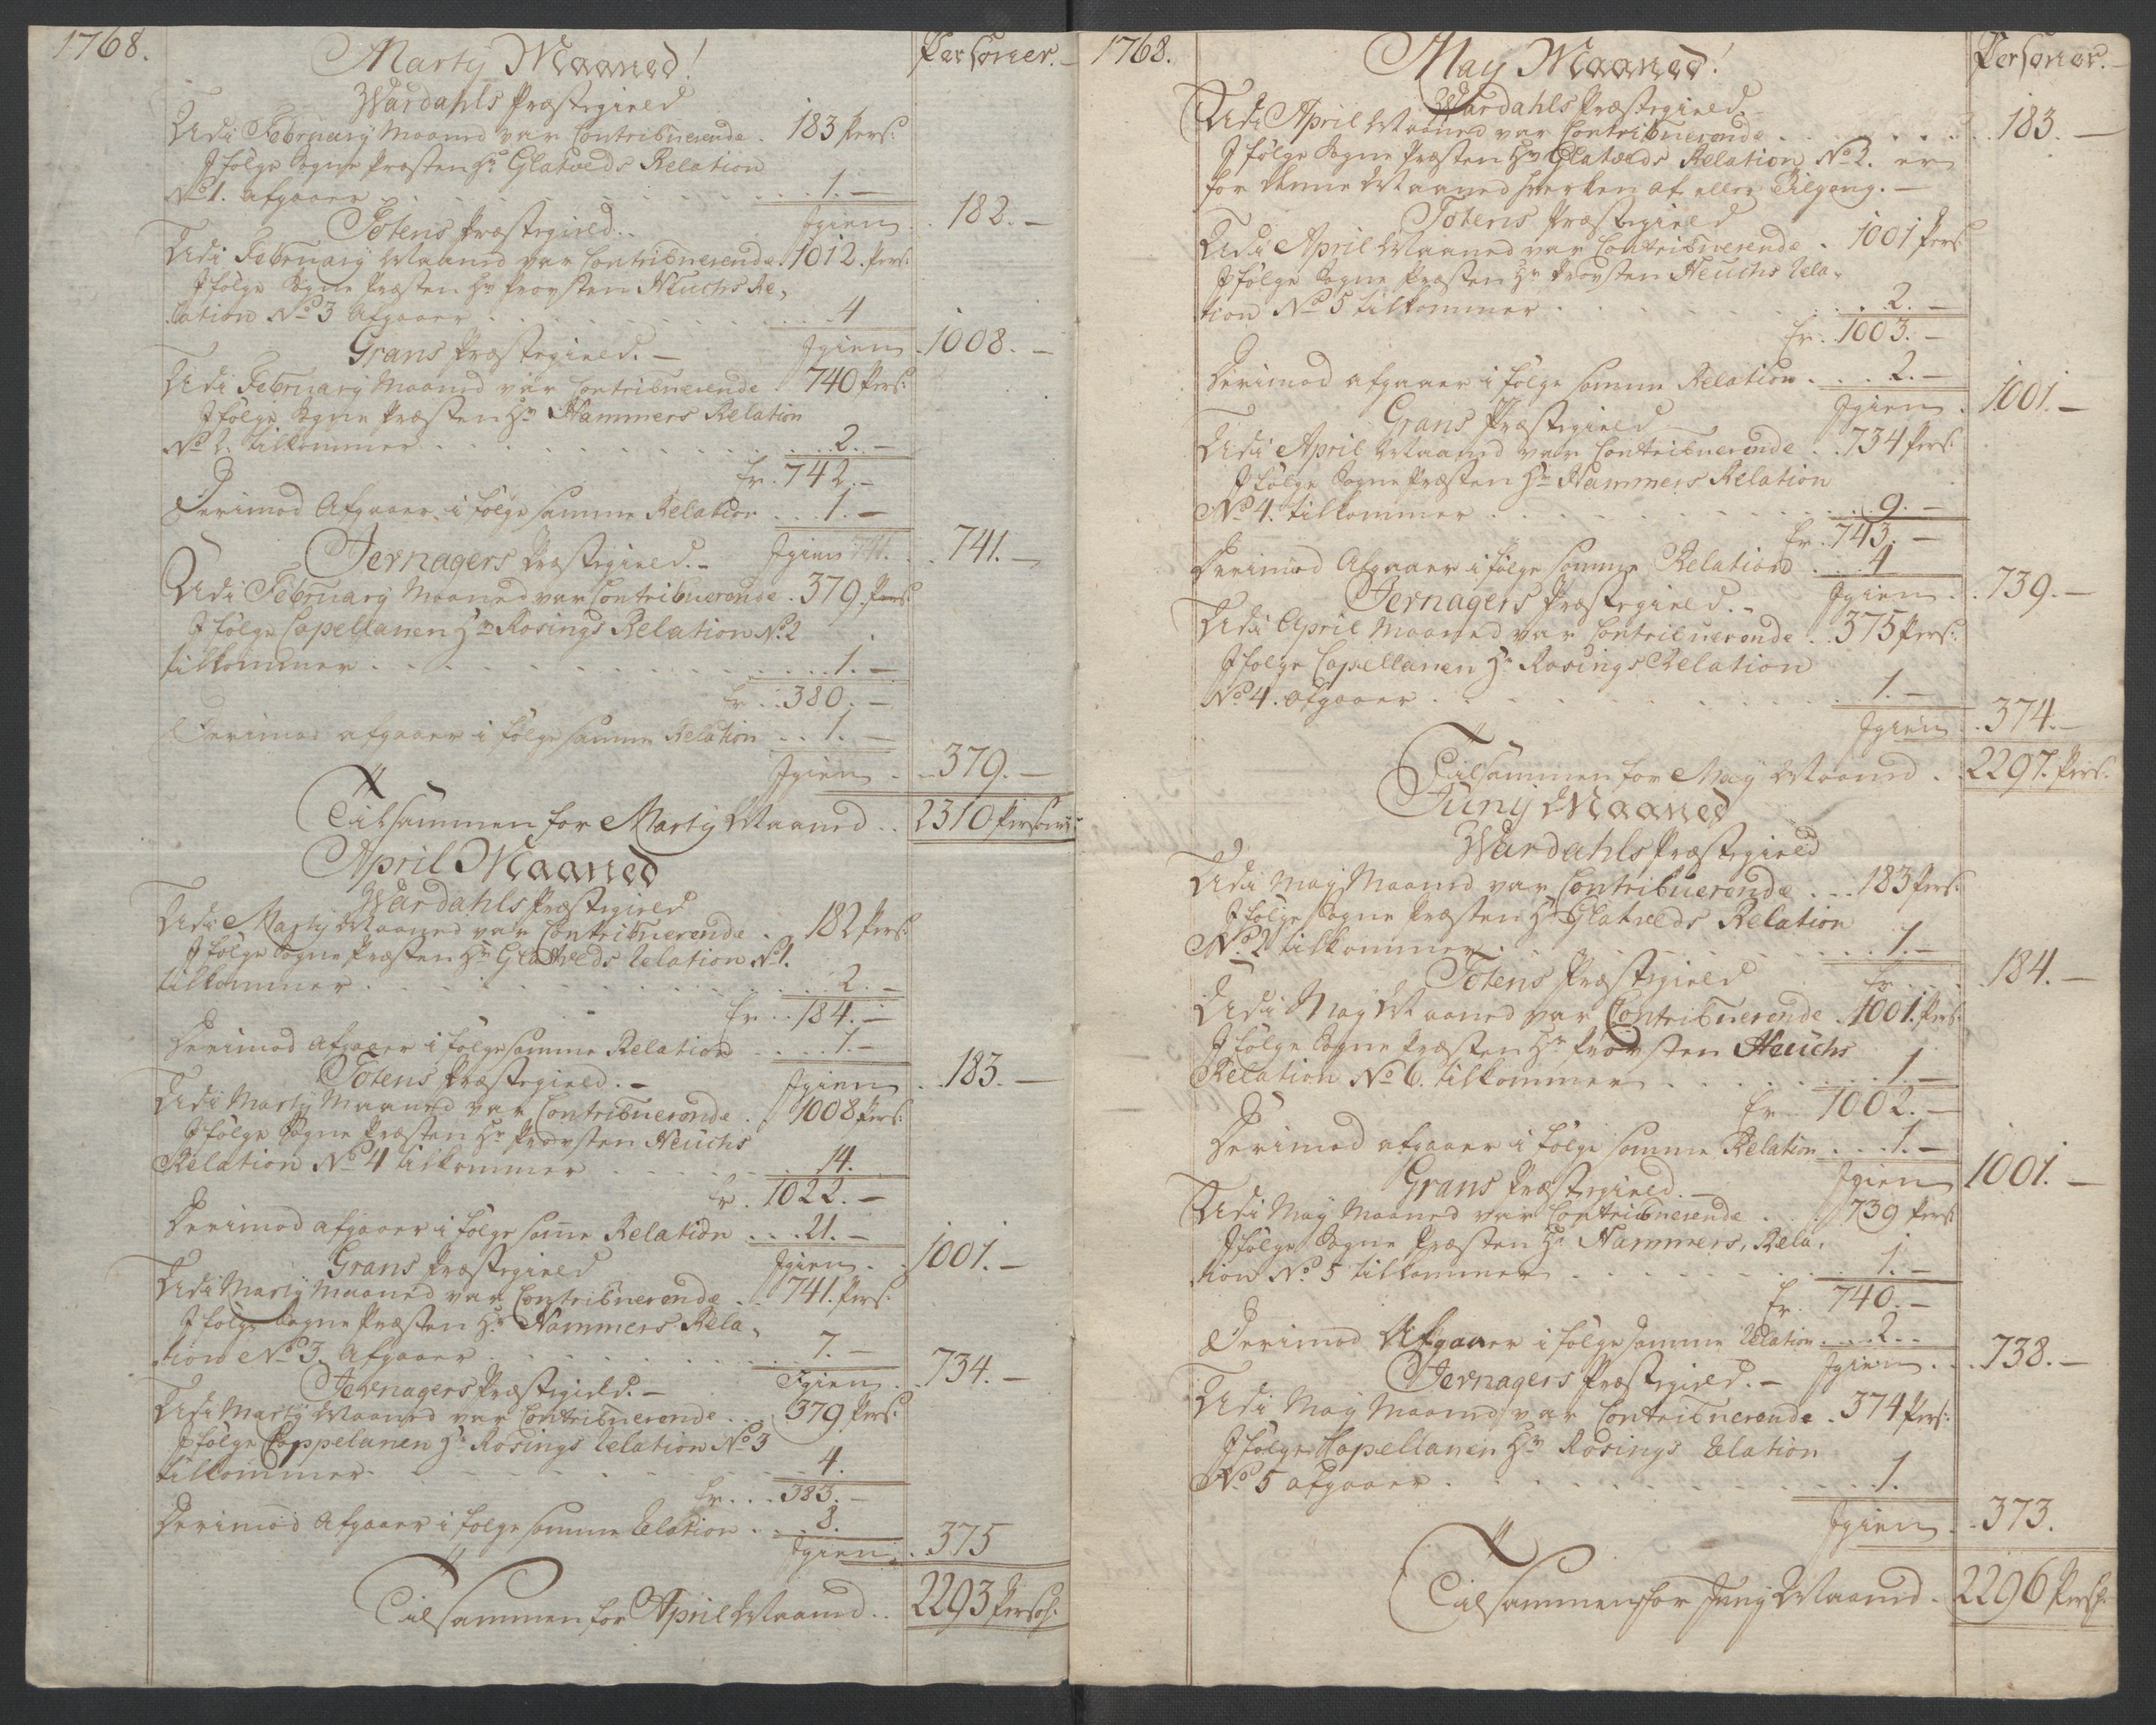 1768.
Marty Maaned!
Personer.
Wardahls Præstegield
Udi February Maaned var Contribuerende . 183 Pers:
Ifølge Sogne Præsten Hr Glatveds Relation
No 1. afgaaer . . . 1. —
Igien . 182. —
Totens Præstegield.
Udi February Maaned var Contribuerende . 1012. Pers:
Ifølge Sogne Præsten Hr Provsten Neuchs Re-
lation No 3 afgaaer . . . 4
Igien . 1008. —
Grans Præstegield. —
Udi February Maaned var Contribuerende . 740 Pers:
Ifølge Sogne Præsten Hr Hammers Relation
No 2. tilkommer . . . 2. —
Er . 742. —
Derimod Afgaaer i følge samme Relation . . . 1. —
Igien 741. . 741. —
Jernagers Præstegield. —
Udi February Maaned var Contribuerende . 379. Pers:
Ifølge Capellanen Hr Rosings Relation No 2
tilkommer . . . 1. —
Er . . 380. —
Derimod afgaaer i følge samme Relation . . 1. —
Igien . . 379. —
Tilsammen for Marty Maaned . . 2310 Personer
April Maaned
Wardahls Præstegield
Udi Marty Maaned var Contribuerende . 182 Pers:
Ifølge Sogne Præsten Hr Glatveds Relation No 1.
tilkommer . . . 2. —
Er . . 184. —
Derimod afgaaer i følge samme Relation . . . 1. —
Igien . . 183. —
Totens Præstegield. —
Udi Marty Maaned var Contribuerende . 1008 Pers:
Ifølge Sogne Præsten Hr Provsten Neuchs
Relation No 4 tilkommer . . . 14.
Er . 1022. —
Derimod afgaaer i følge same Relation . . . 21. —
Igien . . 1001. —
Grans Præstegield
Udi Marty Maaned var Contribuerende . . 741. Pers:
Ifølge Sogne Præsten Hr Hammers Rela-
tion No 3. afgaaer . . . 7. —
Igien . 734. —
Jernagers Præstegield. —
Udi Marty Maaned var Contribuerende . . 379 Pers:
Ifølge Cappelanen Hr Rosings Relation No 3
tilkommer . . . 4.
Er . . . 383. —
Derimod Afgaaer i følge samme Relation . . . 8.
Igien . . 375
Tilsammen for April Maaned . . 2293 Persoh:
1768.
May Maaned!
Personer. —
Wardahls Præstegield
Udi April Maaned var Contribuerende . . . 183. —
Ifølge Sogne Præsten Hr Glatveds Relation No 2. er
for denne Maaned hverken af eller Tilgang. —
Totens Præstegield
Udi April Maaned var Contribuerende . 1001 Pers:
Ifølge Sogne Præsten Hr Provsten Neuchs Rela-
tion No 5 tilkommer . . . 2. —
Er . 1003. —
Derimod afgaaer i følge samme Relation . . . 2. —
Igien . 1001. —
Grans Præstegield
Udi April Maaned var Contribuerende . . 734 Pers:
Ifølge Sogne Præsten Hr Hammers Relation
No 4. tilkommer . . . 9. —
Er . 743. —
Derimod Afgaaer i følge samme Relation . . . 4
Igien . . 739. —
Jernagers Præstegield. —
Udi April Maaned var Contribuerende . . 375 Pers:
Ifølge Capellanen Hr Rosings Relation
No 4. afgaaer . . . 1. —
Igien . . 374. —
Tilsammen for May Maaned . . 2297. Pers:
Juny Maaned
Wardahls Præstegield
Udi May Maaned var Contribuerende . . . 183 Pers:
Ifølge Sogne Præsten Hr Glatveds Relation
No 2 tilkommer . . . 1. —
Er . . . 184. —
Totens Præstegield
Udi May Maaned var Contribuerende . 1001. Pers:
Ifølge Sogne Præsten Hr Provsten Neuchs
Relation No 6. tilkommer . . . 1. —
Er . . 1002. —
Derimod afgaaer i følge samme Relation . . . 1. —
Igien 1001. —
Grans Præstegield. —
Udi May Maaned var Contribuerende . . 739 Pers:
Ifølge Sogne Præsten Hr Hammers Rela-
tion No 5 tilkommer . . . 1. —
Er . 740. —
Derimod Afgaaer i følge samme Relation . . . 2. .
Igien . . . 738. —
Jernagers Præstegield. —
Udi May Maaned var Contribuerende . 374 Pers:
Ifølge Kapellanen Hr Rosings Relation
No 5 afgaaer . . . 1.
Igien . . 373.
Tilsammen for Juny Maaned . 2296 Persh: